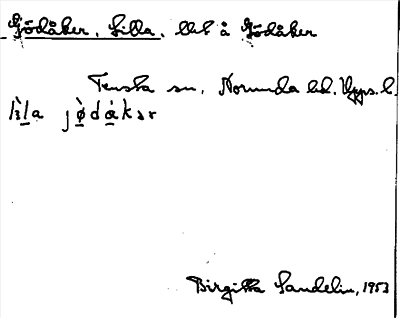 Gödåker, Lilla, del å Gödåker
Tensta sn, Norunda hd. Upps. l.
lı̀la jø̀dåkər
Birgitta Sandelin, 1953